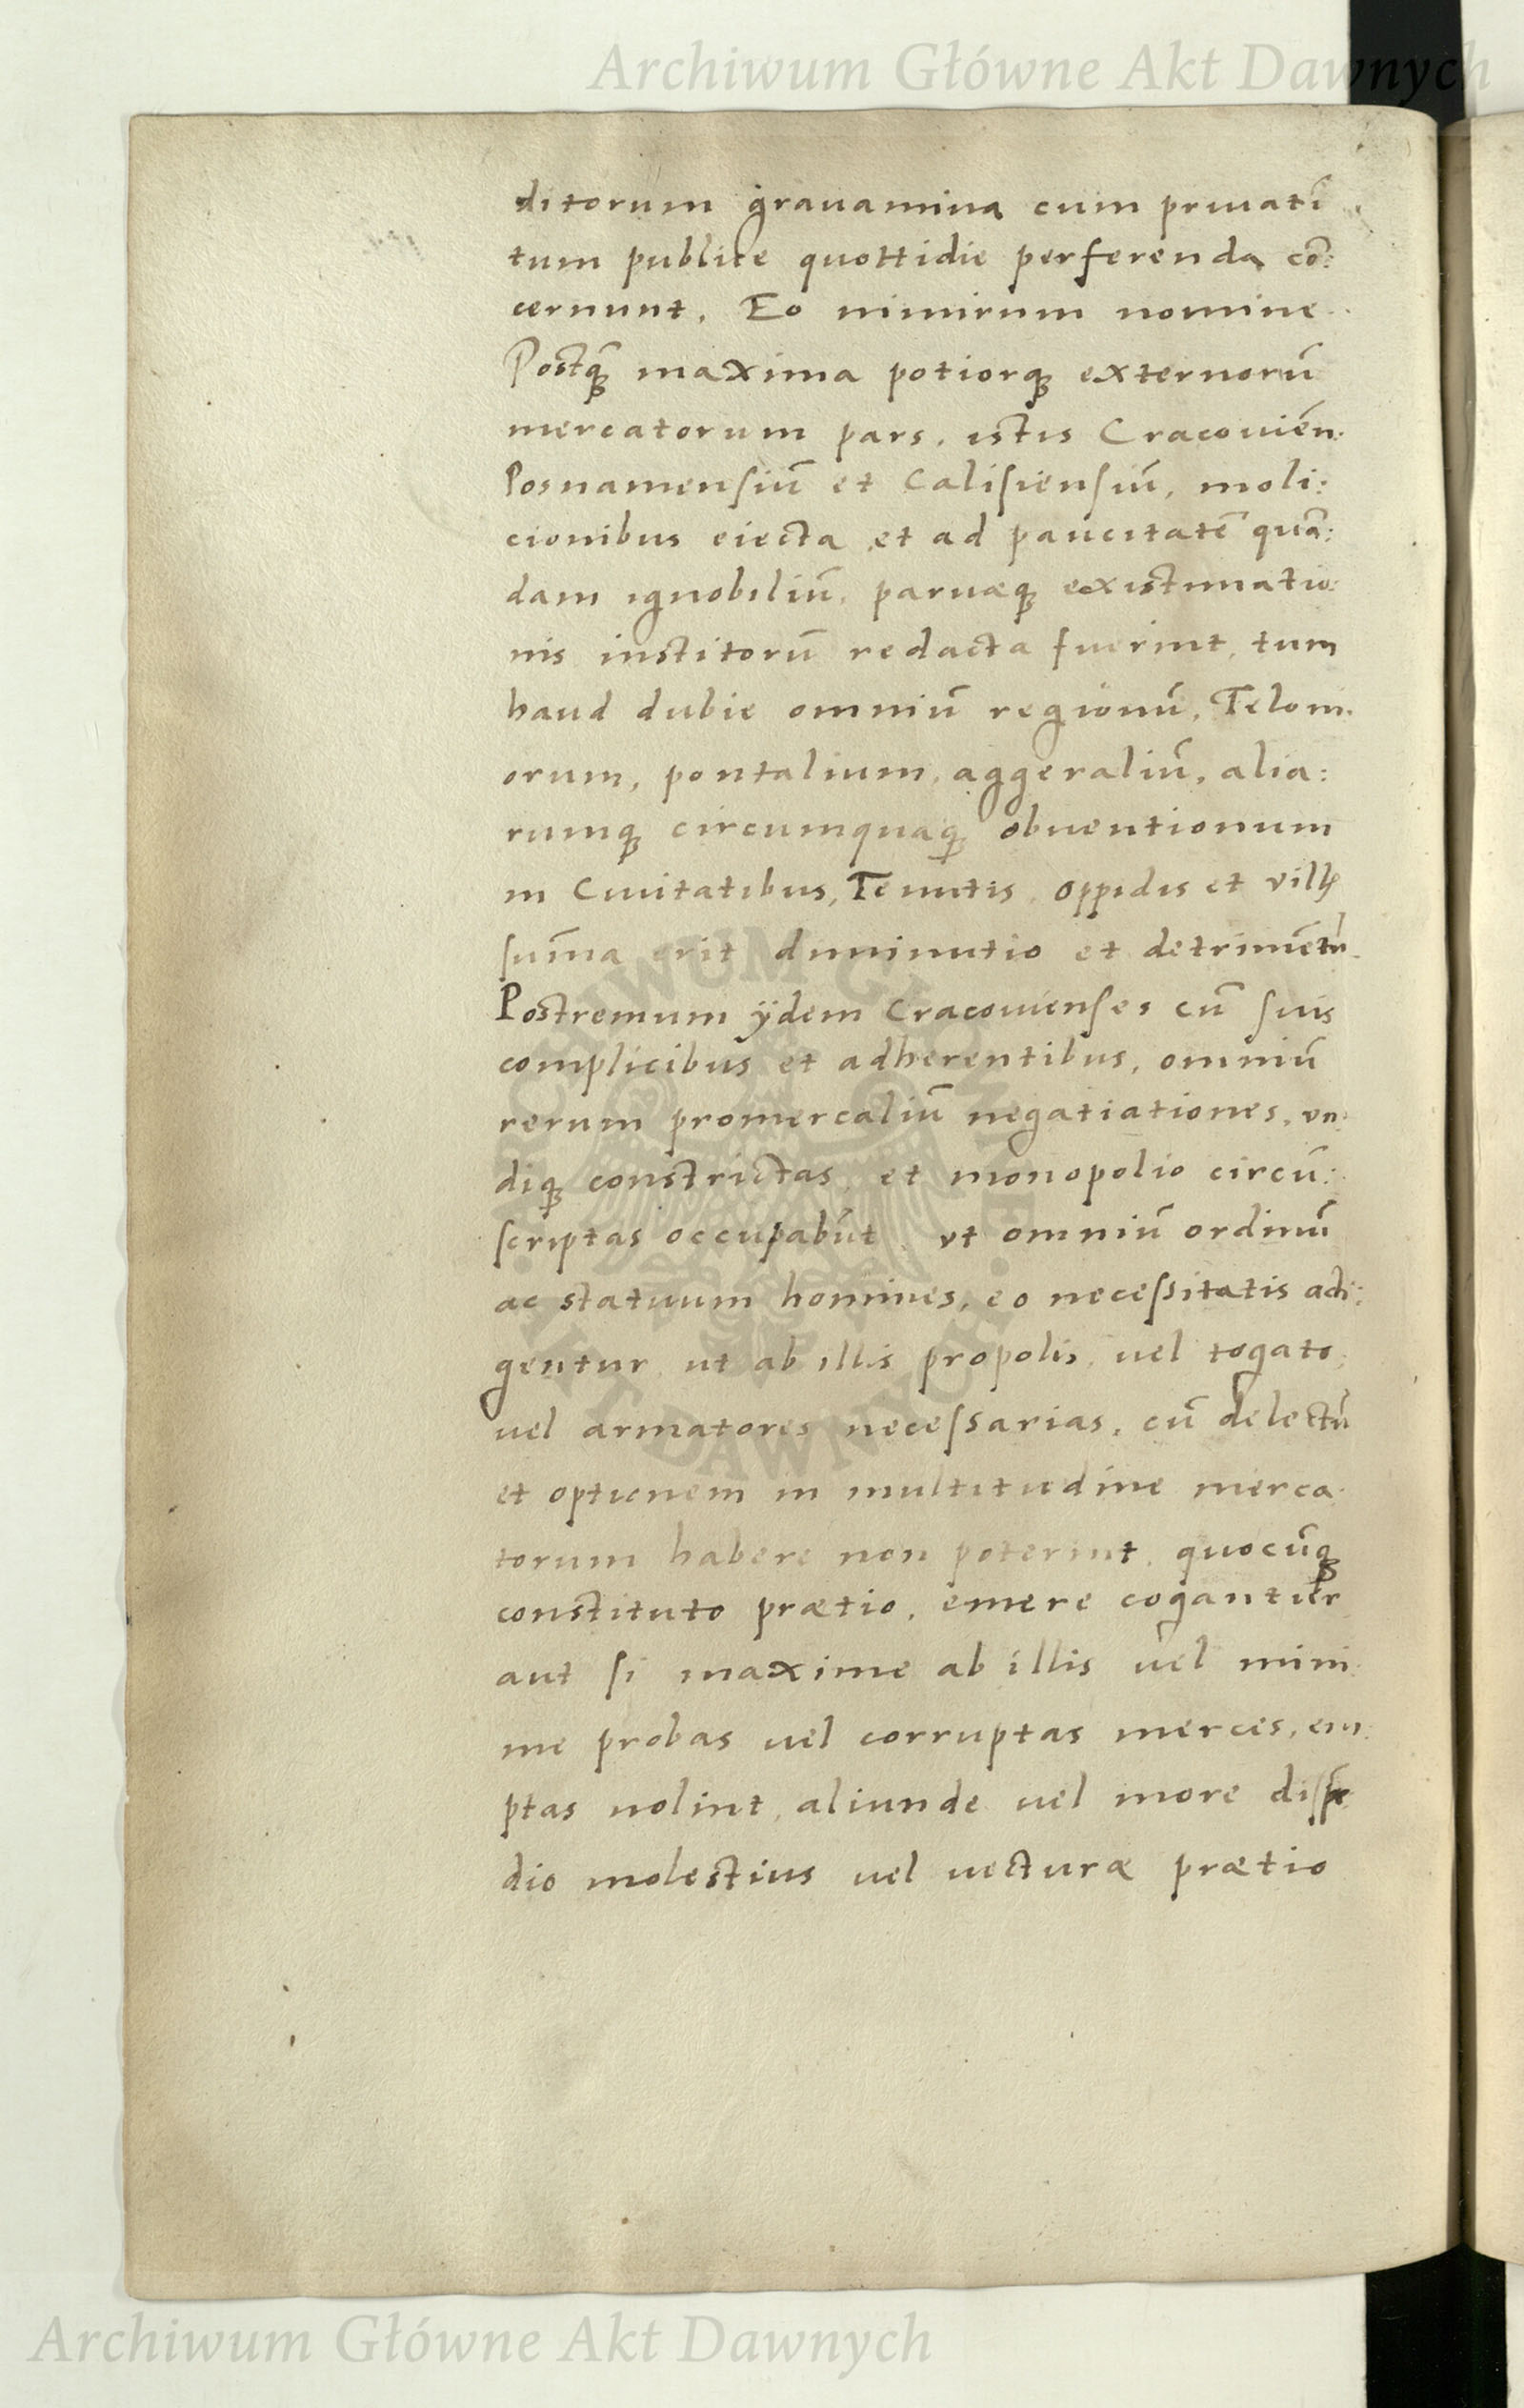 Archiwum Główne Akt Dawnych
ditorum grauamina cum priuatĩ
tum publice quottidie perferenda cõ:
cernunt. Eo nimirum nomine
Postq̃ꝫ maxima potiorqꝫ externorũ
mercatorum pars, istis Cracouiẽn:
Posnamensiũ et Calisiensiũ, moli:
cionibus eiecta et ad paucitatẽ quã:
dam ignobiliũ, paruæqꝫ existimatio:
nis institorũ redacta fuerint, tum
haud dubie omniũ regionũ, Teloni.
orum, pontalium, aggeraliũ, alia:
rumqꝫ circumquaqꝫ obuentionum
in Ciuitatibus, Tenutis, oppidis et villꝭ
sum̃a erit diminutio et detrimẽtũ.
Postremum ÿdem Cracouienses cũ suis
complicibus et adherentibus, omniũ
rerum promercaliũ negatiationes, vn:
diqꝫ constrictas, et monopolio circũ:
scriptas occupabũt, vt omniũ ordinũ
ac statuum homines, eo necessitatis adi:
gentur, ut ab illis propolis, vel togato,
vel armatores necessarias, cũ delectũ
et optionem in multitudine merca:
torum habere non poterint, quocũqꝫ
constituto prætio, emere cogantur
aut si maxime ab illis vel mini:
me probas uel corruptas merces, em:
ptas nolint, aliunde uel more dispẽ
dio molestius uel uecturæ prætio
ARCHIWUM GŁÓWNE
AKT DAWNYCH
Archiwum Główne Akt Dawnych